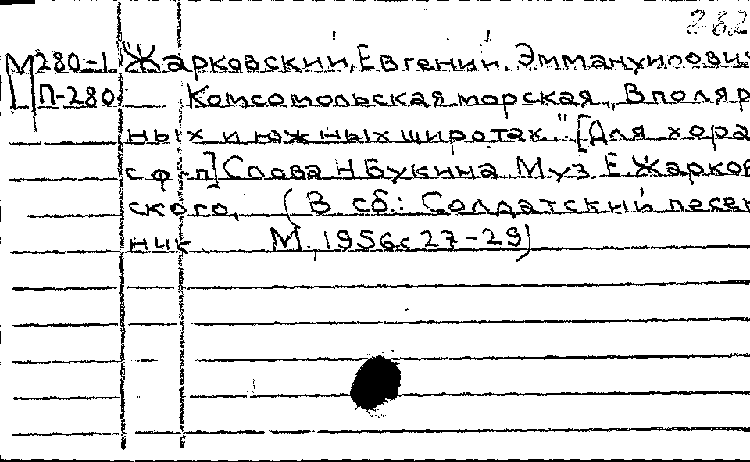 282
М280-1 Жарковский, Евгений. Эммануилович
П-280 Комсомольская морская „В поляр
ных и южных широтах" [Для хора
с ф-п] Слова Н Букина Муз Е. Жарков
ского, (В сб.: Солдатский песен
ник М., 1956 с 27-29)